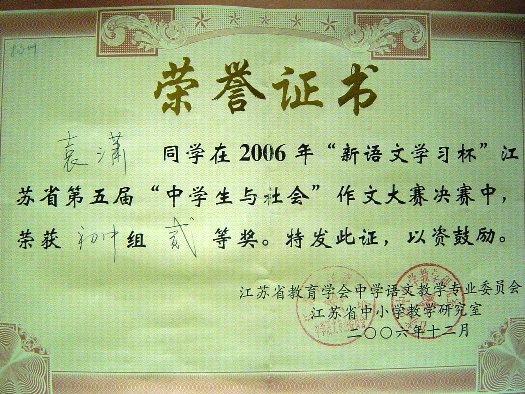 荣誉证书
袁潇 同学在2006年“新语文学习杯”江
苏省第五届“中学生与社会”作文大赛决赛中，
荣获 初中组 贰 等奖。特发此证，以资鼓励。
江苏省教育学会中学语文教学专业委员会
江苏省中小学教学研究室
二〇〇六年十二月